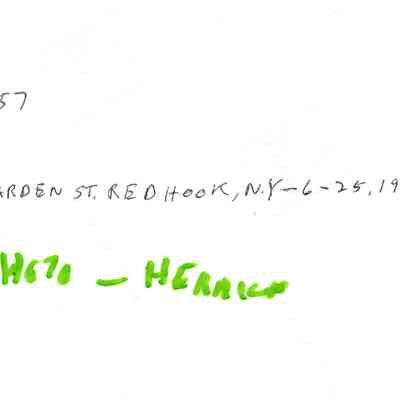 57
ARDEN ST. RED HOOK, N.Y - 6 - 25, 19
H670 - HERRICK